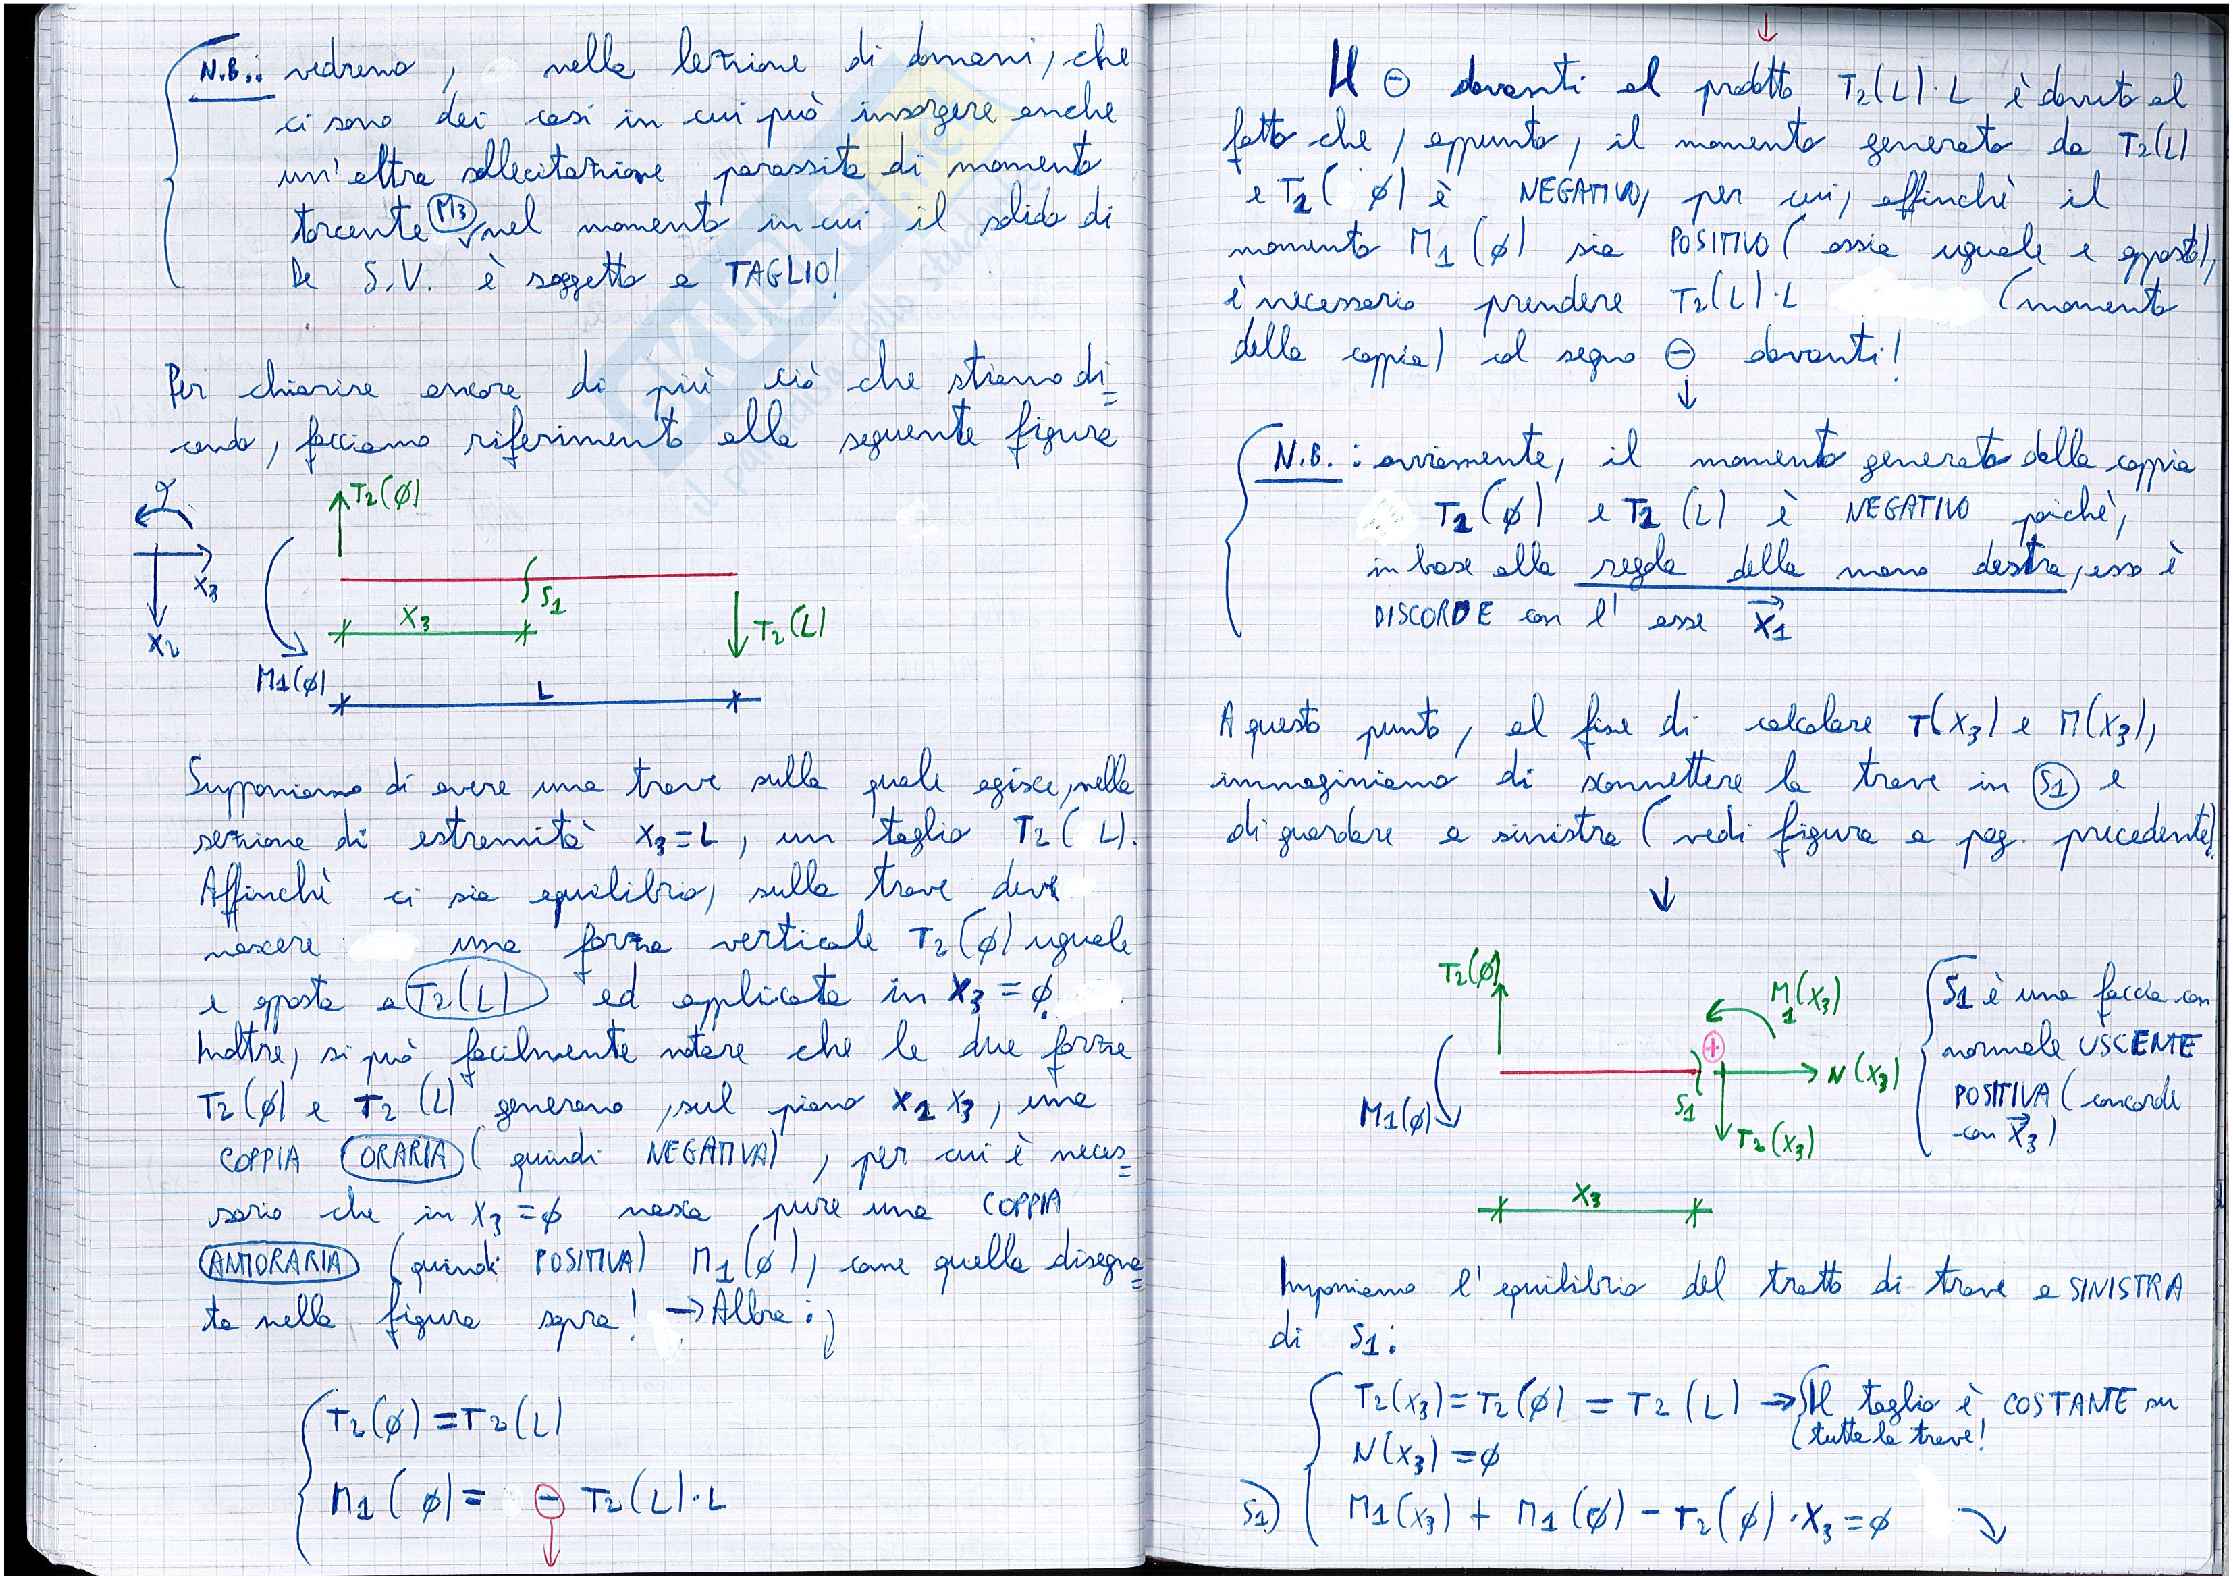 N.B.: vedremo, nella lezione di domani, che
ci sono dei casi in cui può insorgere anche
un'altra sollecitazione parassita di momento
torcente M3 nel momento in cui il solido di
De S.V. è soggetto a TAGLIO!
Per chiarire ancora di più ciò che stiamo di=
cendo, facciamo riferimento alla seguente figura
T2(ϕ)
X3
X2
S1
X3
T2(L)
M1(ϕ)
L
Supponiamo di avere una trave sulla quale agisce, nella
sezione di estremità X3=L, un taglio T2(L).
Affinchè ci sia equilibrio, sulla trave deve
nascere una forza verticale T2(ϕ) uguale
e opposta a T2(L) ed applicata in X3=ϕ.
Inoltre, si può facilmente notare che le due forze
T2(ϕ) e T2(L) generano, sul piano X2X3, una
COPPIA ORARIA (quindi NEGATIVA), per cui è neces=
sario che in X3=ϕ nasca pure una COPPIA
ANTIORARIA (quindi POSITIVA) M1(ϕ), come quella disegna=
ta nella figura sopra! → Allora:
T2(ϕ)=T2(L)
M1(ϕ)= - T2(L)·L
Il ⊖ davanti al prodotto T2(L)·L è dovuto al
fatto che, appunto, il momento generato da T2(L)
e T2(ϕ) è NEGATIVO, per cui, affinchè il
momento M1(ϕ) sia POSITIVO (ossia uguale e opposto),
è necessario prendere T2(L)·L (momento
della coppia) col segno ⊖ davanti!
↓
N.B.: ovviamente, il momento generato dalla coppia
T2(ϕ) e T2(L) è NEGATIVO poichè,
in base alla regola della mano destra, esso è
DISCORDE con l'asse X1
A questo punto, al fine di calcolare T(X3) e M(X3),
immaginiamo di sconnettere la trave in S1 e
di guardare a sinistra (vedi figura a pag. precedente).
↓
T2(ϕ)
M1(X3)
+
N(X3)
M1(ϕ)
S1
T2(X3)
X3
S1 è una faccia con
normale USCENTE
POSITIVA (concorde
con X3)
Imponiamo l'equilibrio del tratto di trave a SINISTRA
di S1:
T2(X3)=T2(ϕ)=T2(L) → Il taglio è COSTANTE su
tutta la trave!
N(X3)=ϕ
S1) M1(X3) + M1(ϕ) - T2(ϕ)·X3=ϕ